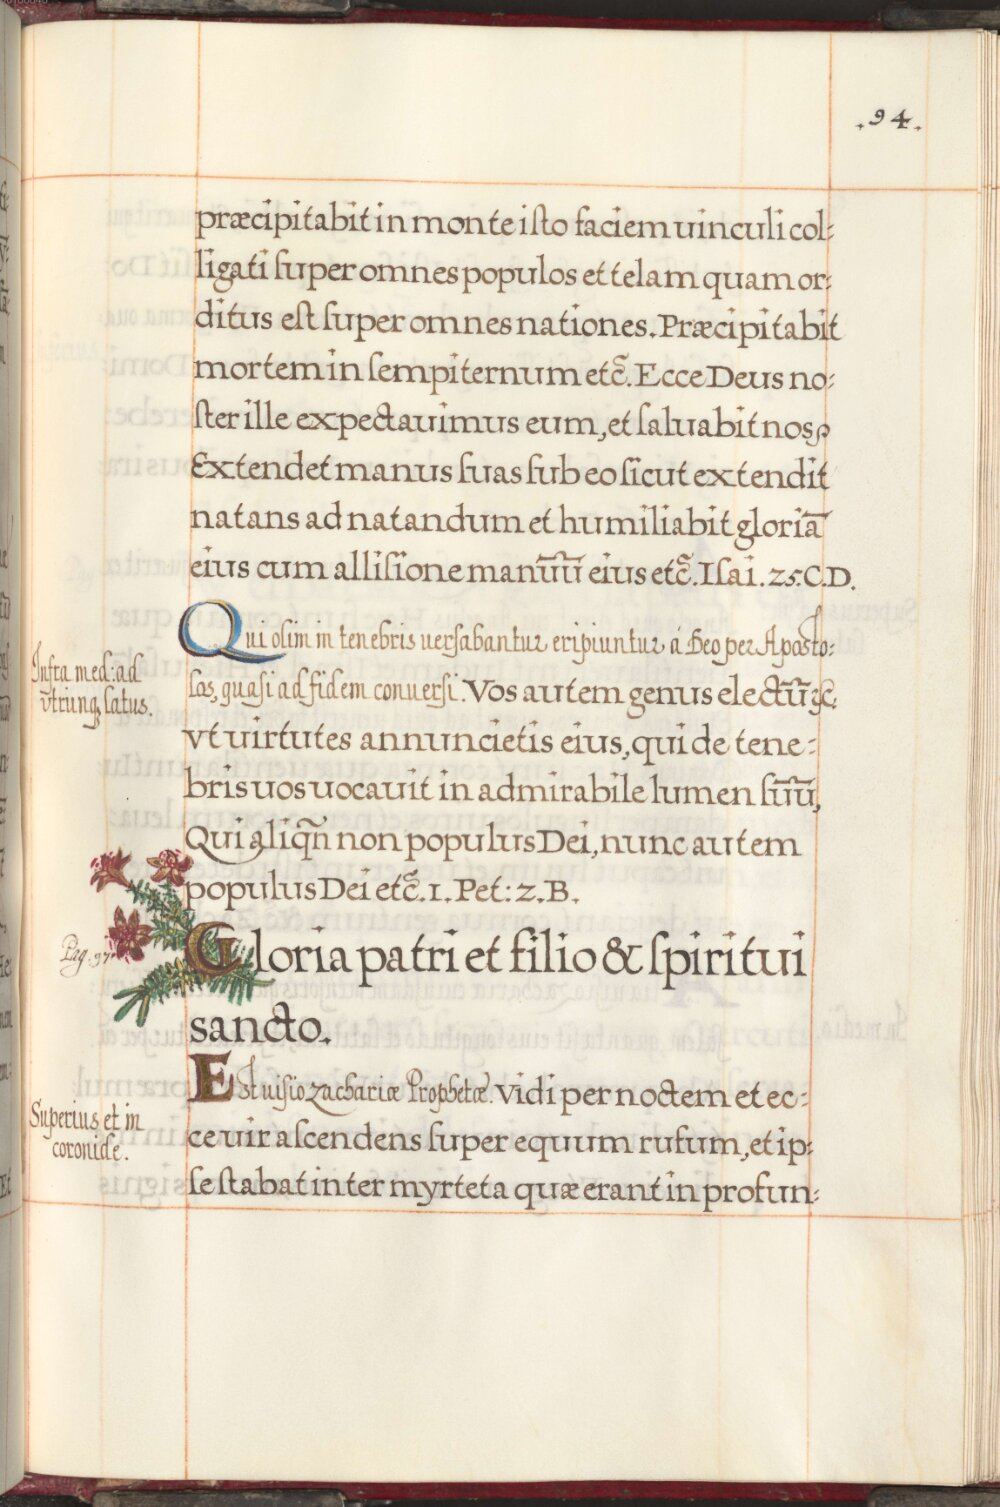 .94.
præcipitabit in monte isto faciem uinculi col:
ligati super omnes populos et telam quam or:
ditus est super omnes nationes. Præcipitabit
mortem in sempiternum etc̃. Ecce Deus no:
ster ille expectauimus eum, et saluabit nos,
Extendet manus suas sub eo sicut extendit
natans ad natandum et humiliabit gloriā
eius cum allisione manūū eius etc̃. Isai. 25. C. D.
Qui olim in tenebris uersabantur eripiuntur á Deo per Aposto:
Infra med: ad
utrunq latus.
los, quasi ad fidem conuersi. Vos autem genus electūū &c.
vt uirtutes annuncietis eius, qui de tene:
bris uos uocauit in admirabile lumen sūū,
Qui aliqñ non populus Dei, nunc autem
populus Dei etc̃. 1. Pet: 2. B.
Pag. 97
Gloria patri et filio & spiritui
sancto.
Est uisio zachariæ Prophetæ. Vidi per noctem et ec:
Superius, et in
coronide.
ce uir ascendens super equum rufum, et ip:
se stabat inter myrteta quæ erant in profun: